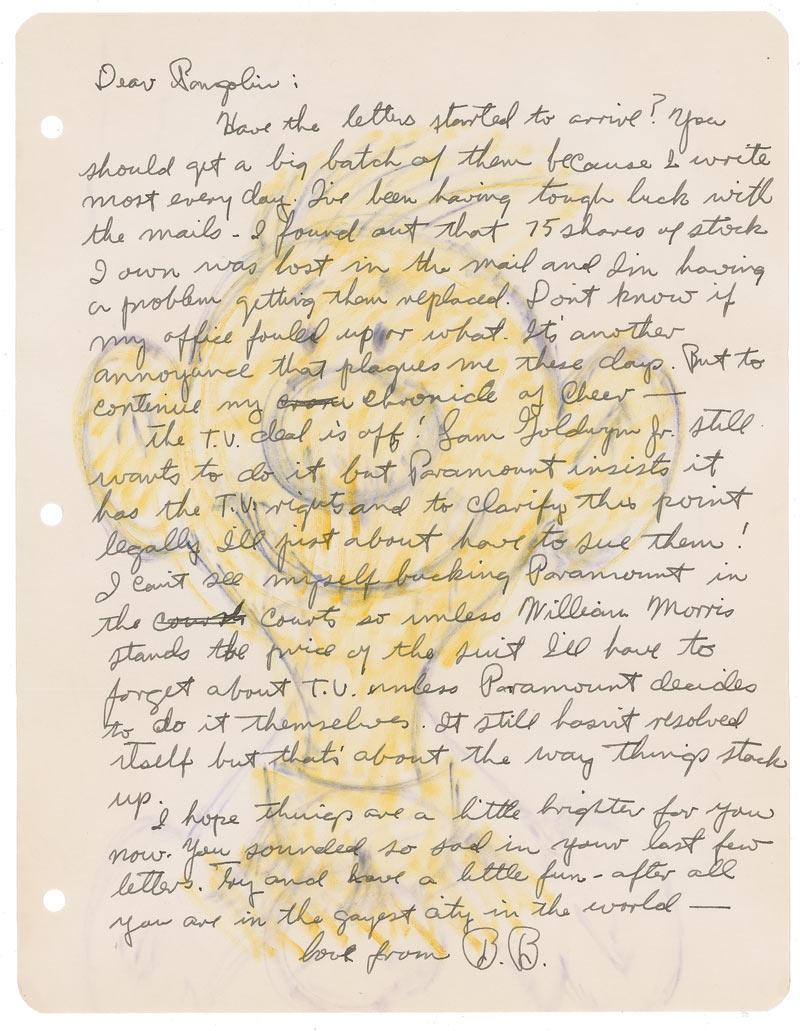 Dear Pangolin:
Have the letters started to arrive? You
should get a big batch of them because I write
most every day. I've been having tough luck with
the mails - I found out that 75 shares of stock
I own was lost in the mail and I'm having
a problem getting them replaced. Don't know if
my office fouled up or what. It's another
annoyance that plagues me these days. But to
continue my chronicle of Cheer —
the T.V. deal is off! Sam Goldwyn Jr. still
wants to do it but Paramount insists it
has the T.V. rights and to clarify this point
legally I'll just about have to sue them!
I can't see myself bucking Paramount in
the courts so unless William Morris
stands the price of the suit I'll have to
forget about T.V. unless Paramount decides
to do it themselves. It still hasn't resolved
itself but that's about the way things stack
up.
I hope things are a little brighter for you
now. You sounded so sad in your last few
letters. Try and have a little fun - after all
you are in the gayest city in the world —
love from B.B.